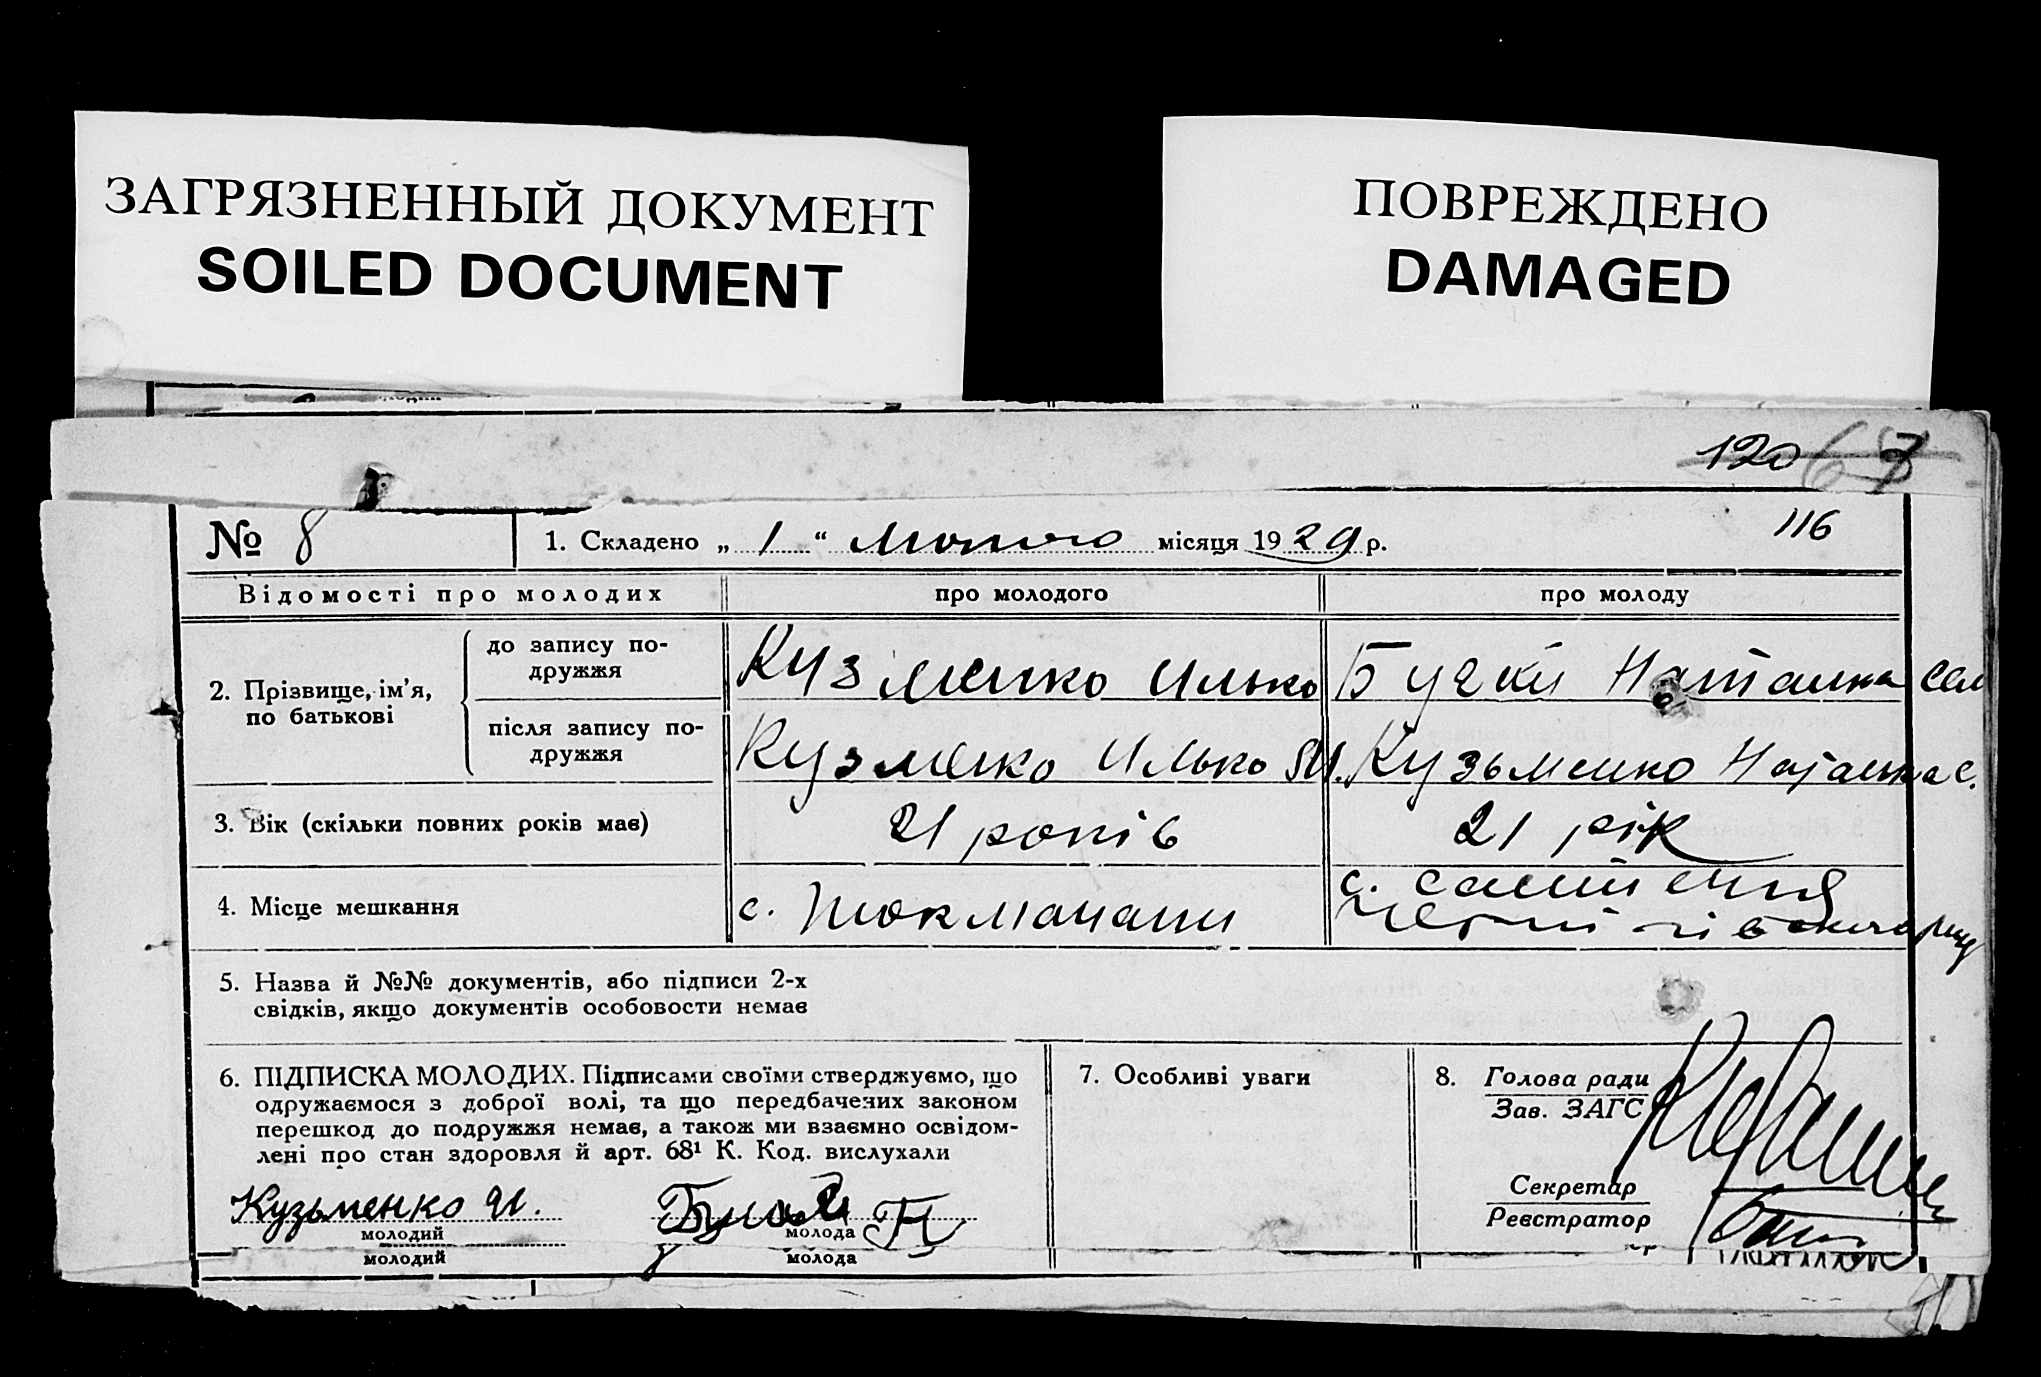 ЗАГРЯЗНЕННЫЙ ДОКУМЕНТ
SOILED DOCUMENT
ПОВРЕЖДЕНО
DAMAGED
120 67
116
№ 8
1. Складено „ 1 “ Лютого місяця 1929 р.
Відомості про молодих
про молодого
про молоду
2. Прізвище, ім’я,
по батькові
до запису по-
дружжя
Кузменко Илько
Натанка Сем
після запису по-
дружжя
Кузменко Илько
Кузьменко Наталка С.
3. Вік (скільки повних років має)
21 років
21 рік
4. Місце мешкання
с. Токмачани
с.
5. Назва й №№ документів, або підписи 2-х
свідків, якщо документів особовости немає
6. ПІДПИСКА МОЛОДИХ. Підписами своїми стверджуємо, що
одружаємося з доброї волі, та що передбачених законом
перешкод до подружжя немає, а також ми взаємно освідом-
лені про стан здоровля й арт. 68¹ К. Код. вислухали
Кузьменко И.
молодий
молода
молодий
молода
7. Особливі уваги
8. Голова ради
Зав. ЗАГС
Секретар
Реєстратор